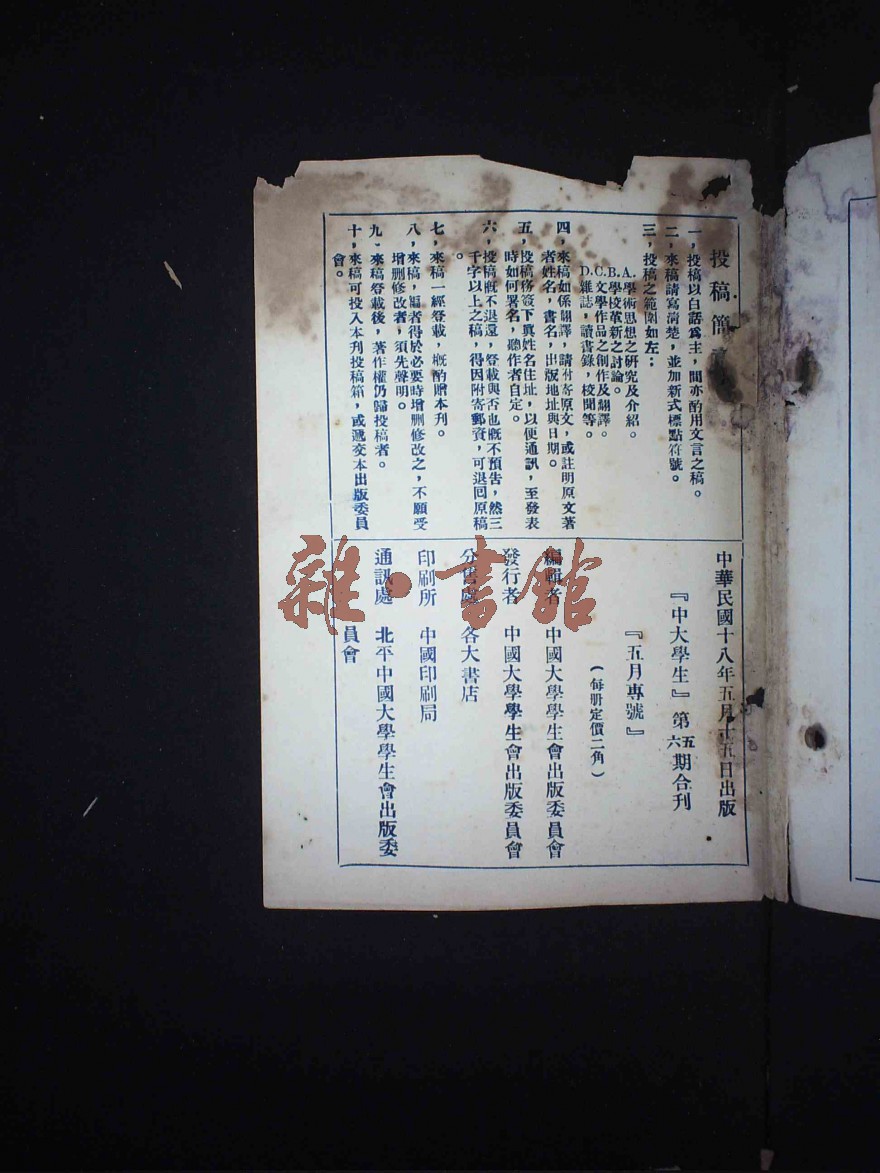 投稿簡
一，投稿以白話爲主，間亦酌用文言之稿。
二，來稿請寫清楚，並加新式標點符號。
三，投稿之範圍如左：
A.學術思想之研究及介紹。
B.學校革新之討論。
C.文學作品之創作及翻譯。
D.雜誌，讀書錄，校聞等。
四，來稿如係翻譯，請付寄原文，或註明原文著
者姓名，書名，出版地址與日期。
五，投稿務簽下眞姓名住址，以便通訊，至發表
時如何署名，聽作者自定。
六，投稿概不退還，登載與否也概不預告，然三
千字以上之稿，得因附寄郵資，可退回原稿
。
七，來稿一經登載，槪酌贈本刊。
八，來稿，編者得於必要時增删修改之，不願受
增删修改者，須先聲明。
九，來稿登載後，著作權仍歸投稿者。
十，來稿可投入本刊投稿箱，或遞交本出版委員
會。
中華民國十八年五月十五日出版
『中大學生』第五六期合刊
『五月專號』
（每册定價二角）
編輯者　中國大學學生會出版委員會
發行者　中國大學學生會出版委員會
分售處　各大書店
印刷所　中國印刷局
通訊處　北平中國大學學生會出版委
員會
雜·書館